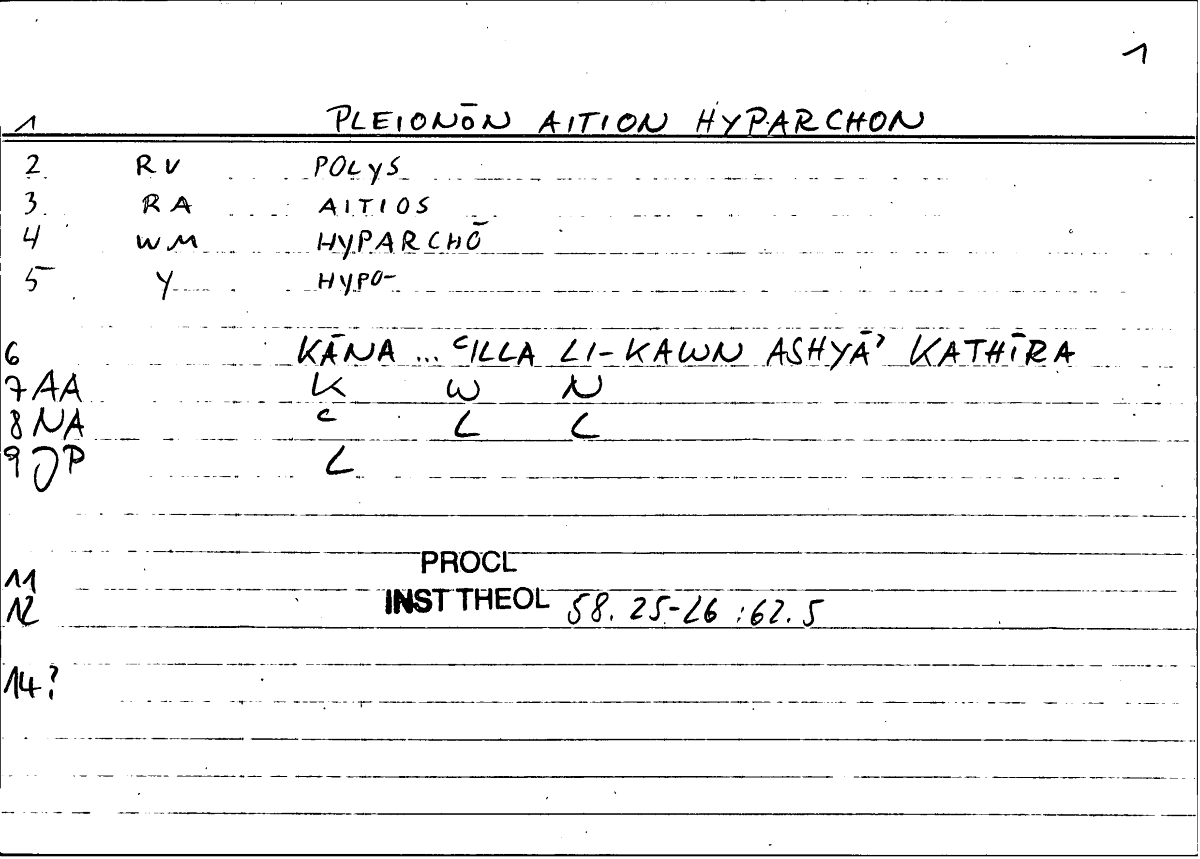 1
1 PLEIONŌN AITION HYPARCHON
2 RV POLYS
3 RA AITIOS
4 WM HYPARCHŌ
5 Y HYPO-
6 KĀNA ... ʿILLA LI-KAWN ASHYĀʾ KATHĪRA
7 AA K W N
8 NA ʿ L L
9 JP L
11 PROCL
12 INST THEOL 58. 25-26 : 62. 5
14?